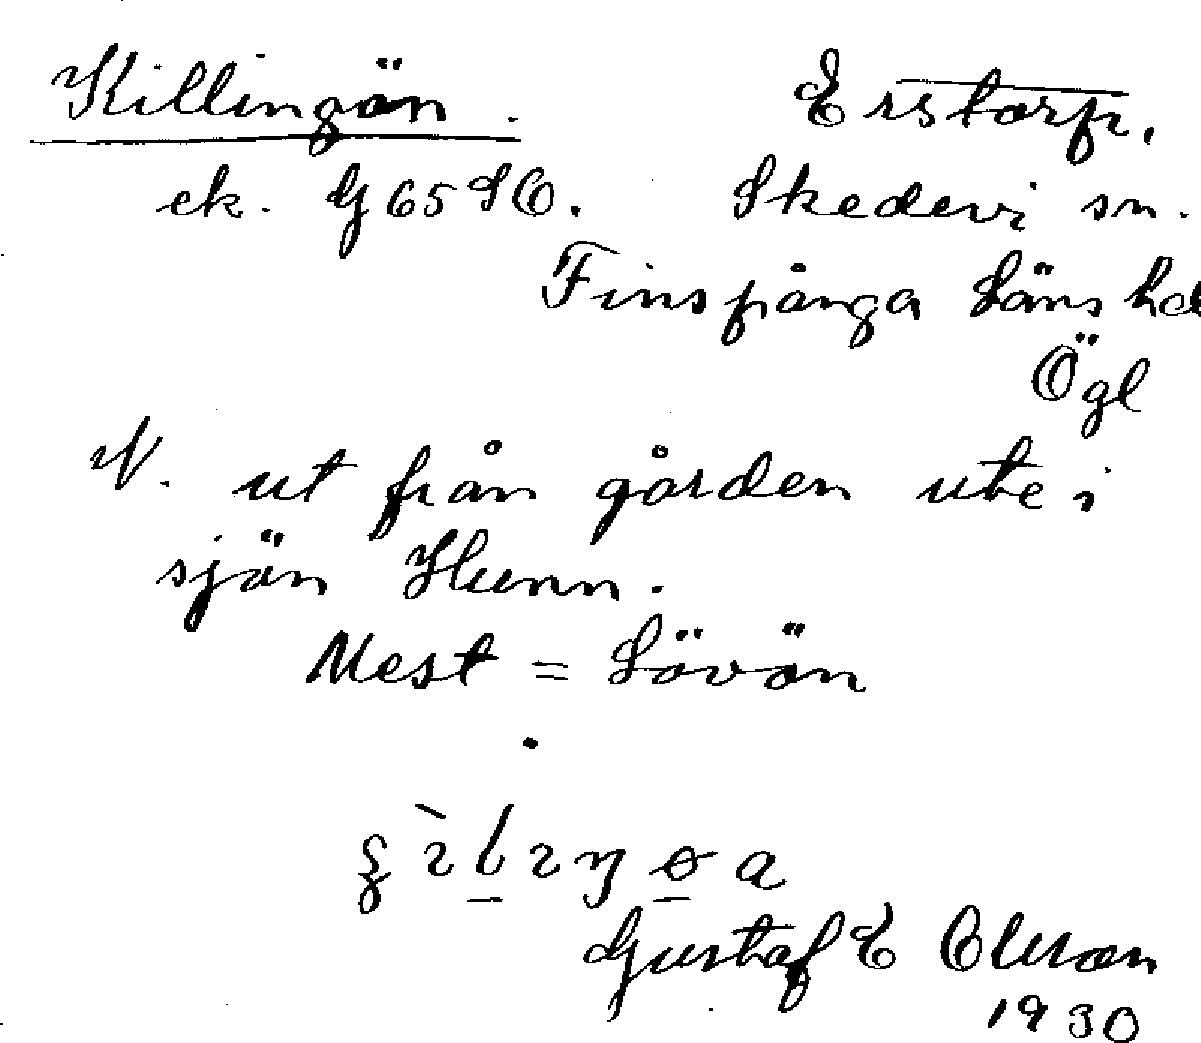 Killingön. Erstorp.
ek. G 65 SO. Skedevi sn.
Finspånga Läns hd
Ögl
N. ut från gården ute i
sjön Hunn.
Mest = Lövön
Gustaf E Olsson
1930